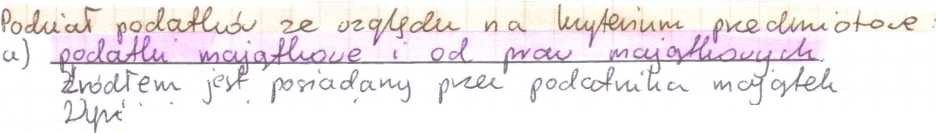 Podział podatków ze względu na kryterium przedmiotowe:
a) podatki majątkowe i od praw majątkowych
źródłem jest posiadany przez podatnika majątek